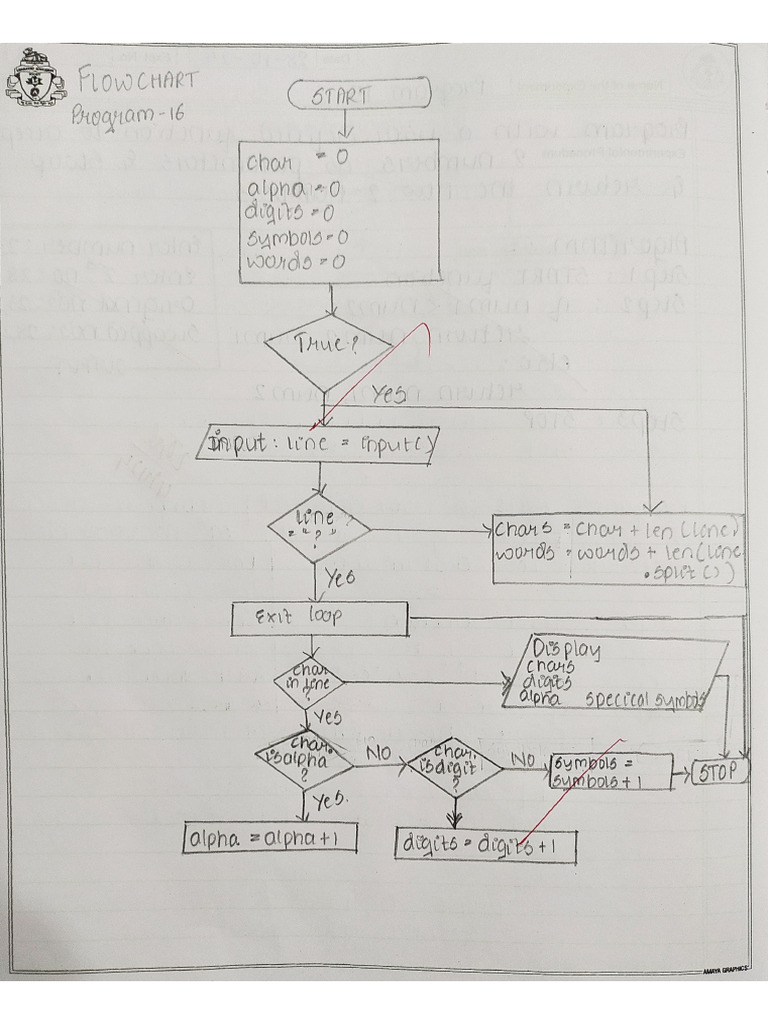 FLOWCHART
Program-16
START
char = 0
alpha = 0
digits = 0
symbols = 0
words = 0
True?
Yes
input: line = input()
line
= " ?
chars = char + len(line)
words = words + len(line
.split())
Yes
Exit loop
Display
chars
digits
alpha specical symbols
char
in line
?
Yes
char.
isalpha
?
NO
char.
isdigit
?
NO
symbols =
symbols + 1
STOP
Yes.
alpha = alpha + 1
digits = digits + 1
AMAYA GRAPHICS